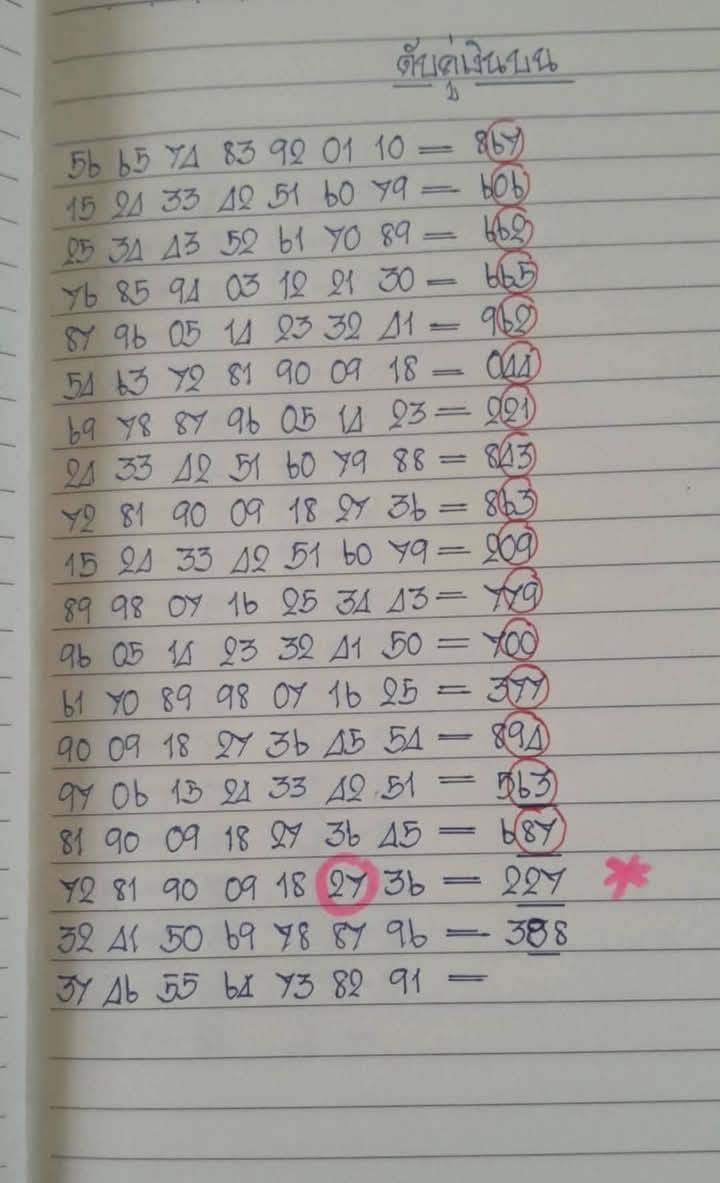 ดับคู่เงินบน
56 65 74 83 92 01 10 = 867
15 24 33 42 51 60 79 = 606
25 34 43 52 61 70 89 = 662
76 85 94 03 12 21 30 = 665
87 96 05 14 23 32 41 = 962
54 63 72 81 90 09 18 = 044
69 78 87 96 05 14 23 = 221
24 33 42 51 60 79 88 = 843
72 81 90 09 18 27 36 = 863
15 24 33 42 51 60 79 = 209
89 98 07 16 25 34 43 = 779
96 05 14 23 32 41 50 = 700
61 70 89 98 07 16 25 = 377
90 09 18 27 36 45 54 = 894
97 06 15 24 33 42 51 = 563
81 90 09 18 27 36 45 = 687
72 81 90 09 18 27 36 = 227 *
32 41 50 69 78 87 96 = 388
37 46 55 64 73 82 91 =